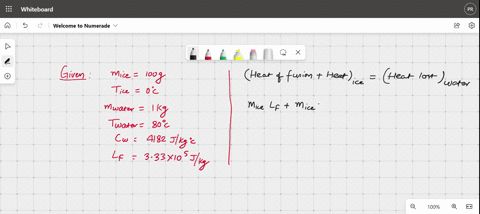 Whiteboard
PR
Welcome to Numerade
Given:
mice = 100g
Tice = 0°c
mwater = 1 kg
Twater = 80°c
Cw = 4182 J/kg°c
LF = 3.33×10^5 J/kg
(Heat of fusion + Heat)ice = (Heat lost)water
mice LF + mice
100%